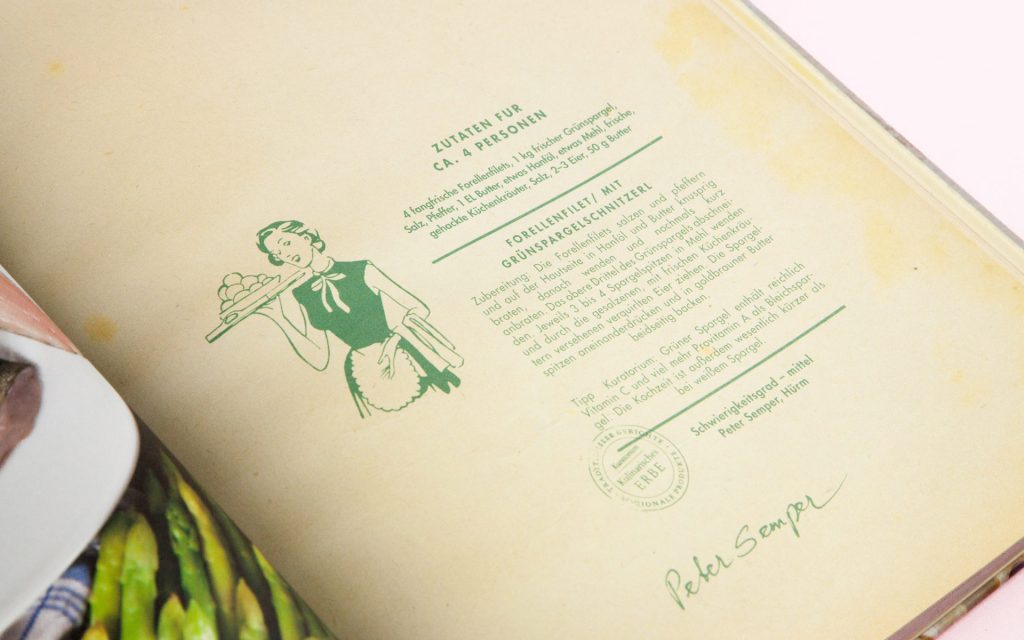 ZUTATEN FÜR
CA. 4 PERSONEN
4 fangfrische Forellenfilets, 1 kg frischer Grünspargel,
Salz, Pfeffer, 1 EL Butter, etwas Hanföl, etwas Mehl, frische,
gehackte Küchenkräuter, Salz, 2–3 Eier, 50 g Butter
FORELLENFILET/ MIT
GRÜNSPARGELSCHNITZERL
Zubereitung: Die Forellenfilets salzen und pfeffern
und auf der Hautseite in Hanföl und Butter knusprig
braten, danach wenden und nochmals kurz
anbraten. Das obere Drittel des Grünspargels abschnei-
den. Jeweils 3 bis 4 Spargelspitzen in Mehl wenden
und durch die gesalzenen, mit frischen Küchenkräu-
tern versehenen verquirlten Eier ziehen. Die Spargel-
spitzen aneinanderdrücken und in goldbrauner Butter
beidseitig backen.
Tipp Kuratorium: Grüner Spargel enthält reichlich
Vitamin C und viel mehr Provitamin A als Bleichspar-
gel. Die Kochzeit ist außerdem wesentlich kürzer als
bei weißem Spargel.
Schwierigkeitsgrad – mittel
Peter Semper, Hürm
Kuratorium
Kulinarisches
ERBE
Peter Semper